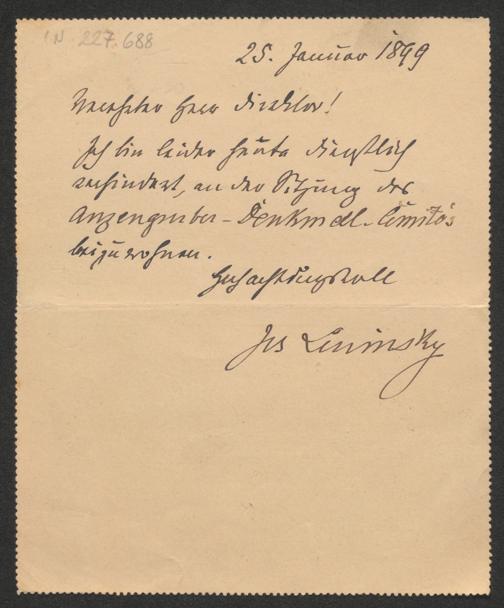 IN 227.688
25. Januar 1899
Verehrter Herr Direktor!
Ich bin leider heute dienstlich
verhindert, an der Sitzung des
Anzengruber-Denkmal-Comités
beizuwohnen.
Hochachtungsvoll
Jos Lewinsky